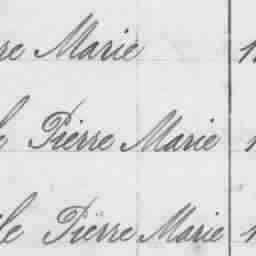 re Marie
Pierre Marie
le Pierre Marie